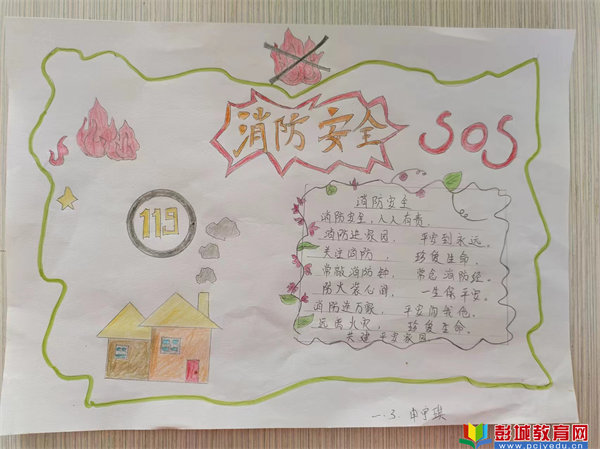 消防安全
SOS
119
消防安全
消防安全,人人有责,
消防进家园, 平安到永远。
关注消防, 珍爱生命。
常敲消防钟, 常念消防经。
防火装心间, 一生保平安。
消防连万家, 平安
远离火灾, 珍爱生命。
关建平安家园
一.3.
彭城教育网
www.pcjyedu.cn